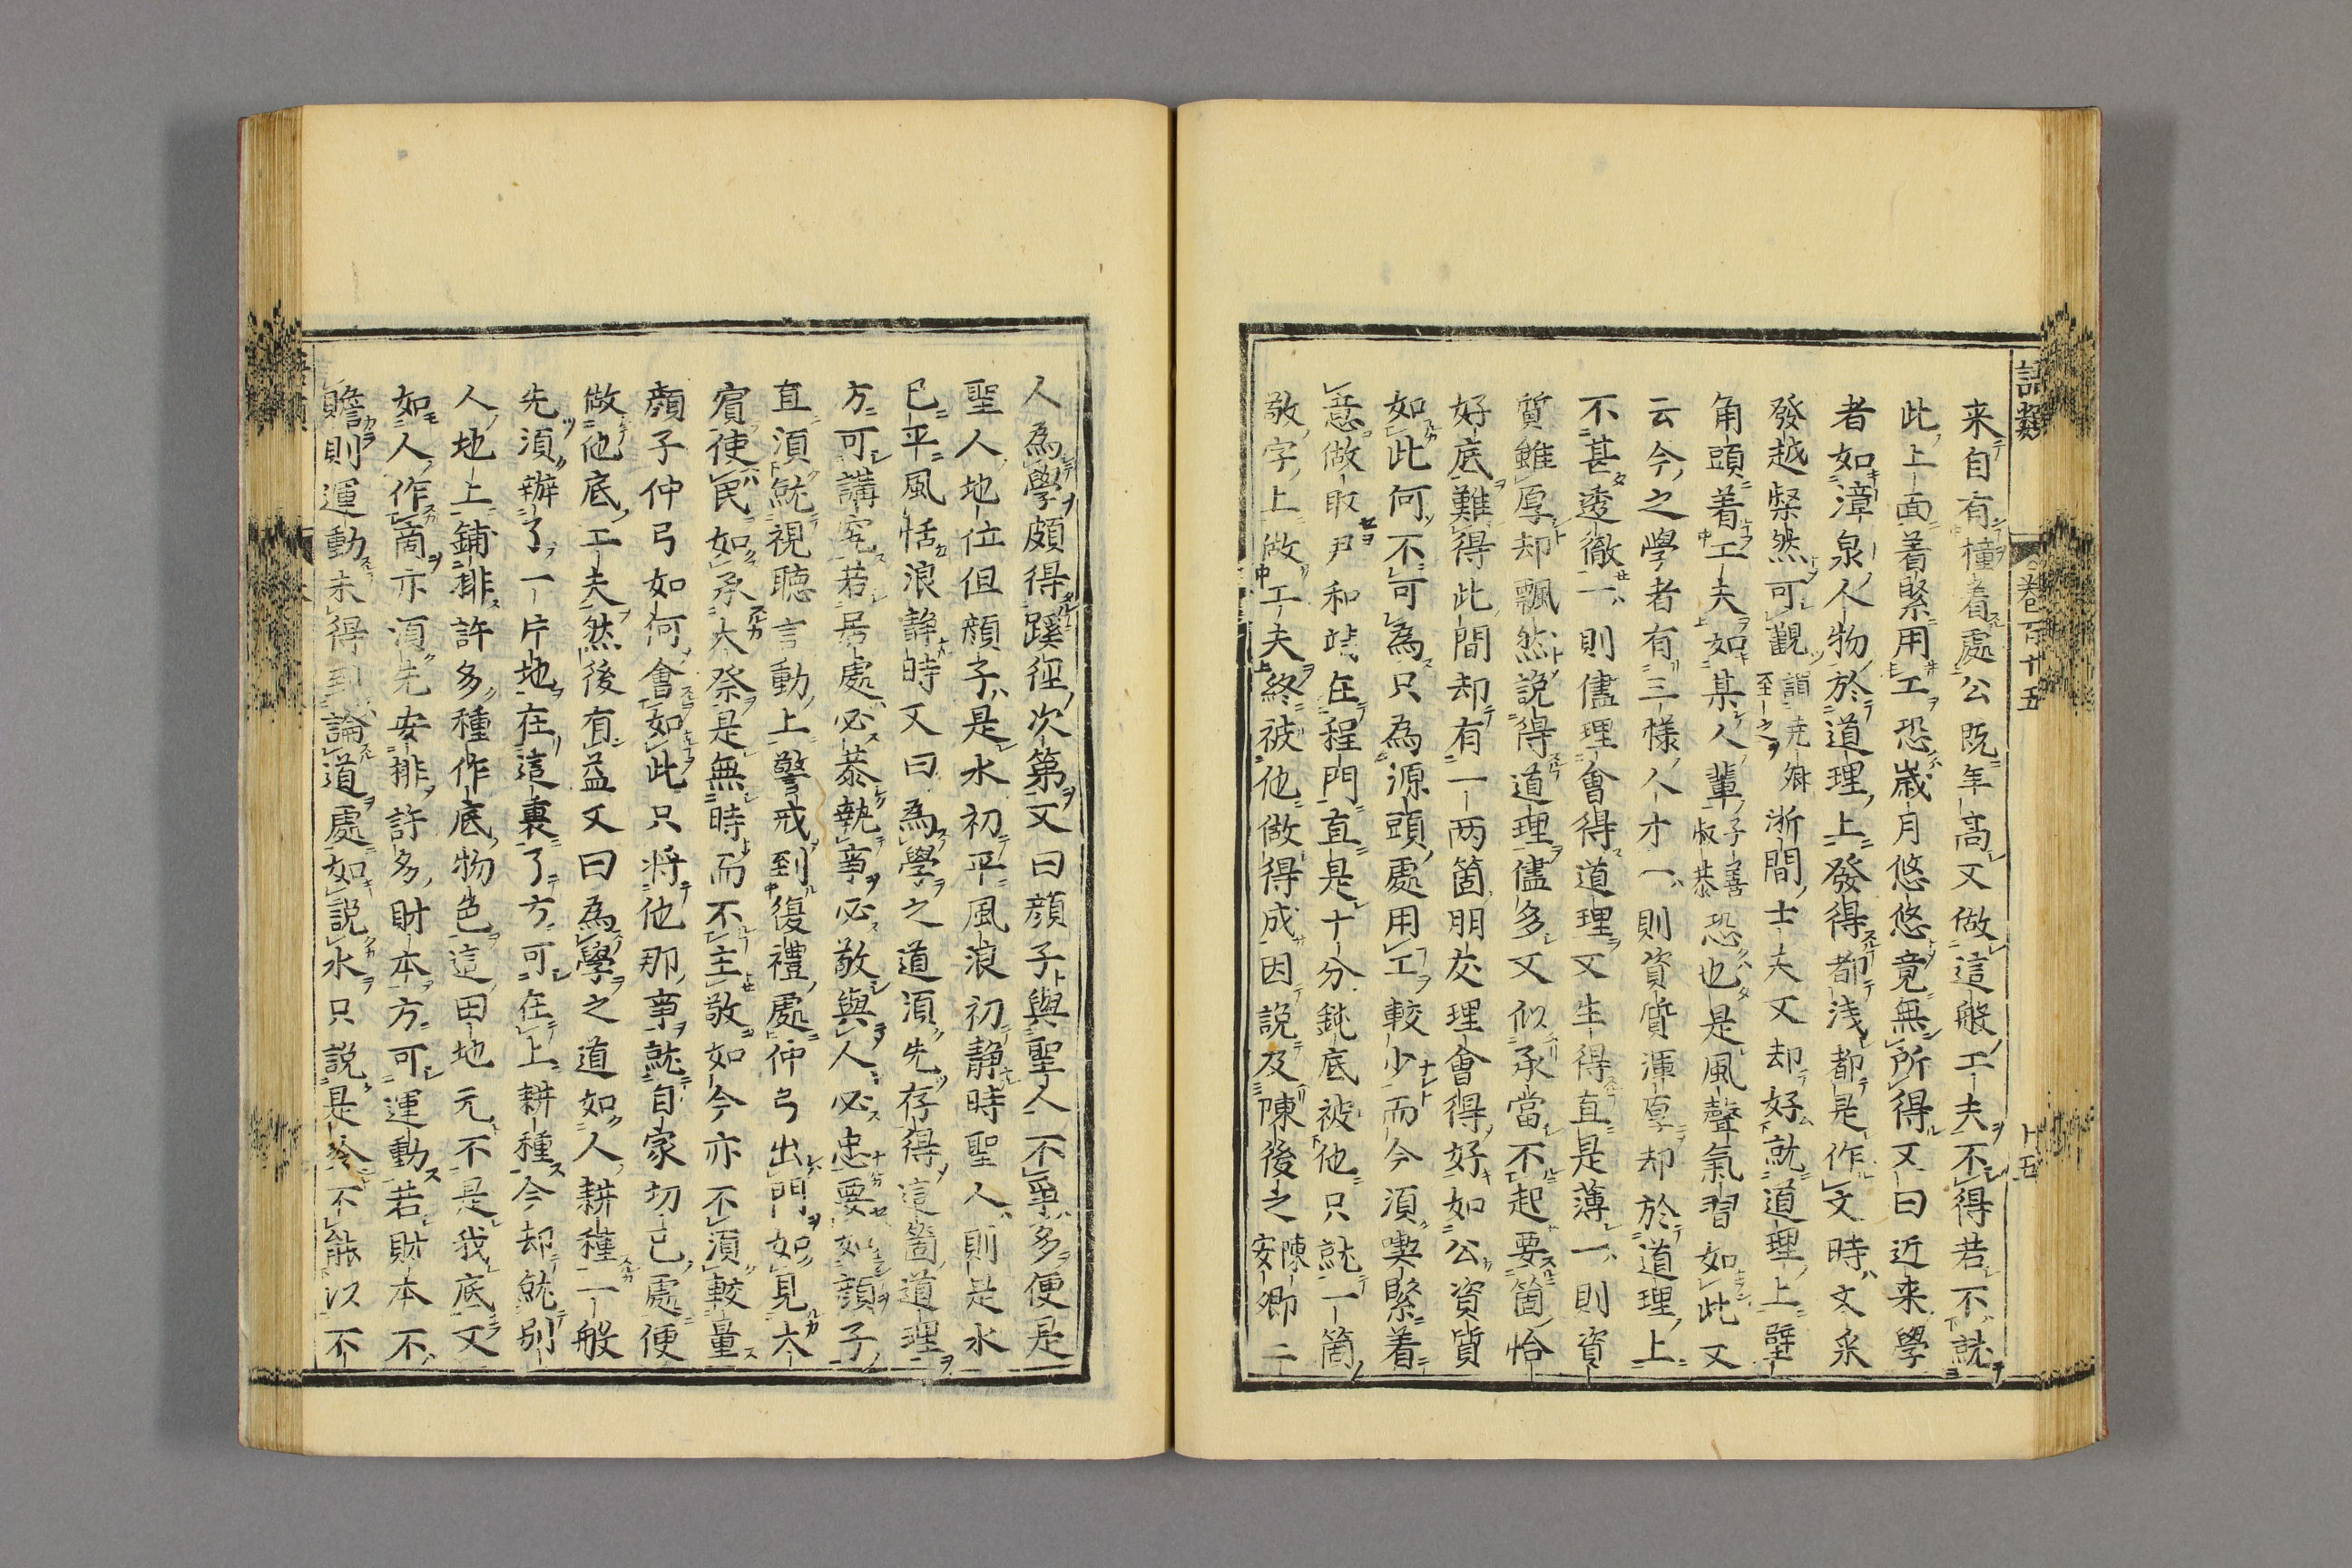 語類 卷百十五 十五
来自有橦着處公既年高又做這般工夫不得若不就
此上面着緊用工恐歳月悠悠竟無所得又曰近来學
者如漳泉人物於道理上發得都浅都是作文時文采
發越粲然可觀謂尭卿至之浙間士夫又却好就道理上壁
角頭着工夫如某人輩子善叔恭恐也是風聲氣習如此又
云今之學者有三様人才一則資質渾厚却於道理上
不甚透徹一則儘理會得道理又生得直是薄一則資
質雖厚却飄然説得道理儘多又似承當不起要箇恰
好底難得此間却有一両箇朋友理會得好如公資質
如此何不可為只為源頭處用工較少而今須喫緊着
意做取尹和靖在程門直是十分鈍底被他只就一箇
敬字上做工夫終被他做得成因説及陳後之陳安卿二
人為學頗得蹊徑次第又曰顔子與聖人不爭多便是
聖人地位但顔子是水初平風浪初静時聖人則是水
已平風恬浪静時又曰為學之道須先存得這箇道理
方可講究若居處必恭執事必敬與人必忠要如顔子
直須就視聴言動上警戒到復禮處仲弓出門如見大
賓使民如承大祭是無時而不主敬如今亦不須較量
顔子仲弓如何會如此只将他那事就自家切己處便
做他底工夫然後有益又曰為學之道如人耕種一般
先須辦了一片地在這裏了方可在上耕種今却就別
人地上鋪排許多種作底物色這田地元不是我底又
如人作商亦須先安排許多財本方可運動若財本不
贍則運動未得到論道處如説水只説是冷不能以不